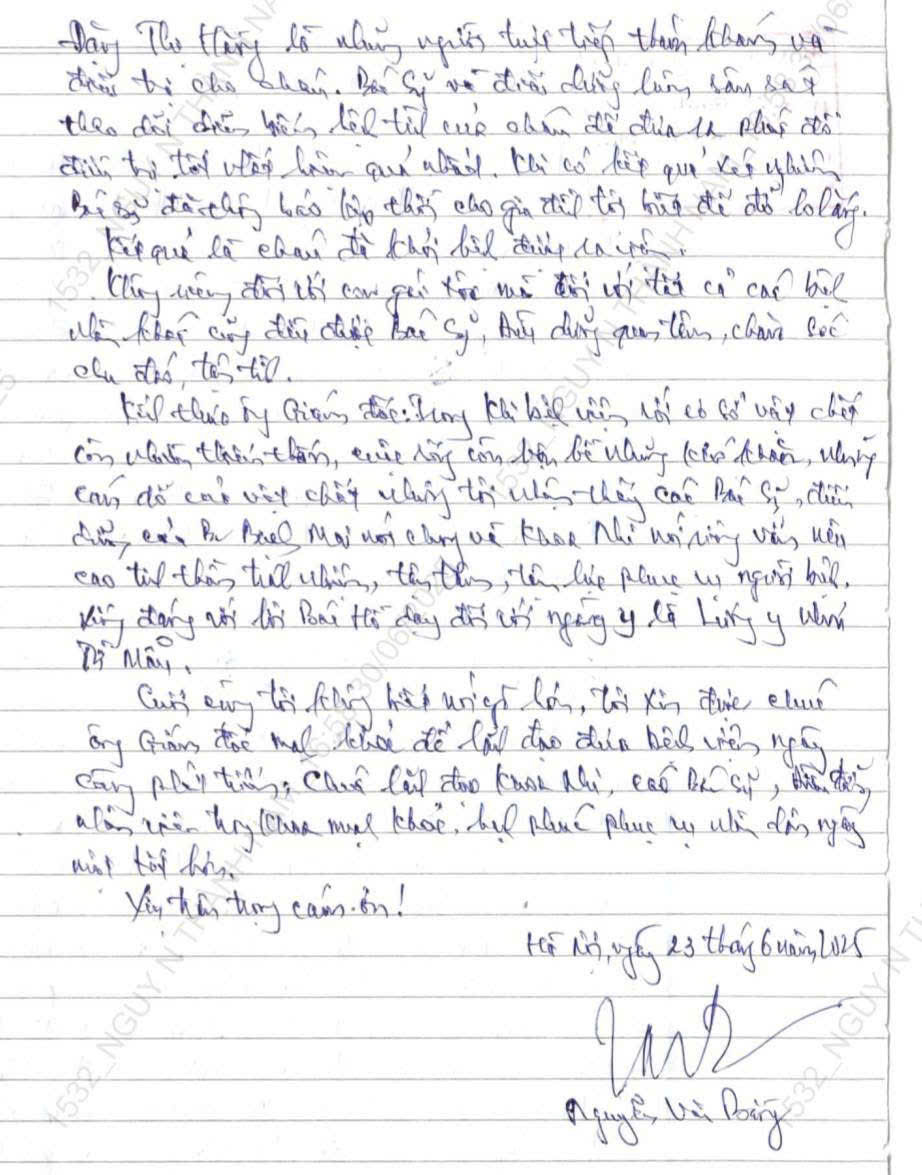 Đặng Thu Hằng là những người trực tiếp thăm khám và
điều trị cho cháu. Bác Sỹ và điều dưỡng luôn sâm sát
theo dõi diễn biến bệnh tật của cháu để đưa ra phác đồ
điều trị tốt nhất hiệu quả nhất. Khi có kết quả xét nghiệm
Bác sỹ đã thông báo kịp thời cho gia đình tôi biết để đỡ lo lắng.
Kết quả là cháu đã khỏi bệnh được ra viện.
Không riêng đối với con gái tôi mà đối với tất cả các bệnh
nhân khác cũng đều được Bác Sỹ, điều dưỡng quan tâm, chăm sóc
chu đáo, tận tình.
Kính thưa ông Giám đốc: Trong khi bệnh viện với cơ sở vật chất
còn nhiều thiếu thốn, cuộc sống còn bộn bề những khó khăn, những
cám dỗ của vật chất nhưng tôi nhận thấy các Bác Sỹ, điều
dưỡng của Bv Bạch Mai nói chung và Khoa Nhi nói riêng vẫn nêu
cao tinh thần trách nhiệm, tận tâm, tận lực phục vụ người bệnh.
Xứng đáng với lời Bác Hồ dạy đối với ngành y là Lương y như
Từ Mẫu.
Cuối cùng tôi không biết nói gì hơn, tôi xin được chúc
ông Giám đốc mạnh khỏe để lãnh đạo đưa bệnh viện ngày
càng phát triển; Chúc lãnh đạo Khoa Nhi, các Bác sỹ, điều dưỡng,
nhân viên trong Khoa mạnh khỏe, hạnh phúc phục vụ nhân dân ngày
một tốt hơn.
Xin trân trọng cảm ơn!
Hà Nội, ngày 23 tháng 6 năm 2025
Nguyễn Văn